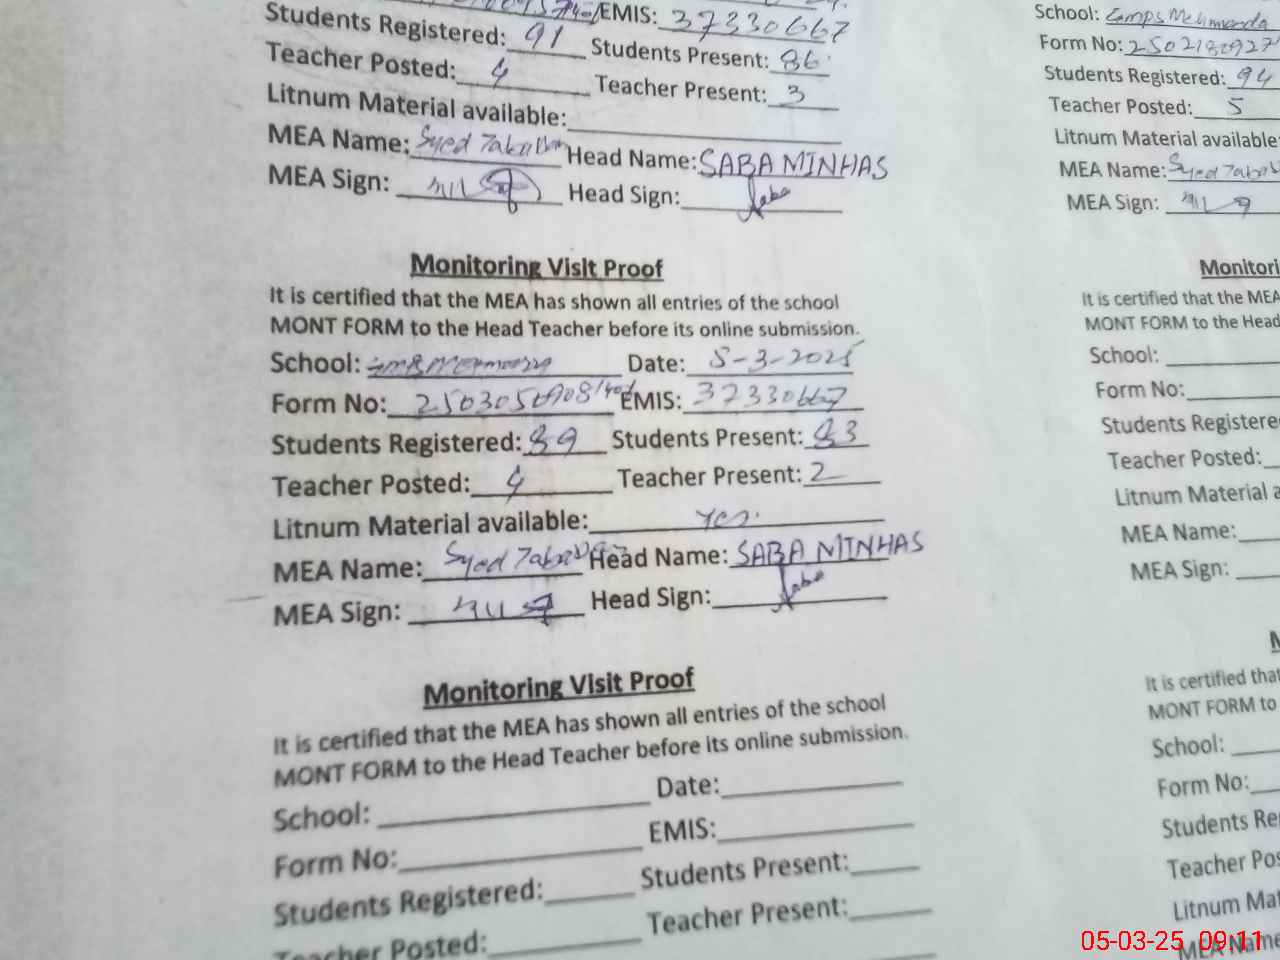 EMIS: 37330667
Students Registered: 91 Students Present: 86
Teacher Posted: 4 Teacher Present: 3
Litnum Material available:
MEA Name: Syed Head Name: SABA MINHAS
MEA Sign: Head Sign: Saba
Monitoring Visit Proof
It is certified that the MEA has shown all entries of the school
MONT FORM to the Head Teacher before its online submission.
School: Date: 5-3-2025
Form No: EMIS: 37330667
Students Registered: 89 Students Present: 83
Teacher Posted: 4 Teacher Present: 2
Litnum Material available: Yes.
MEA Name: Syed Head Name: SABA MINHAS
MEA Sign: Head Sign: Saba
Monitoring Visit Proof
It is certified that the MEA has shown all entries of the school
MONT FORM to the Head Teacher before its online submission.
School: Date:
Form No: EMIS:
Students Registered: Students Present:
Teacher Posted: Teacher Present:
School:
Form No: 2502180927
Students Registered: 94
Teacher Posted: 5
Litnum Material available
MEA Name: Syed
MEA Sign:
Monitori
It is certified that the MEA
MONT FORM to the Head
School:
Form No:
Students Registere
Teacher Posted:
Litnum Material a
MEA Name:
MEA Sign:
It is certified that
MONT FORM to
School:
Form No:
Students Re
Teacher Pos
Litnum Mat
MEA Name
05-03-25 09:11